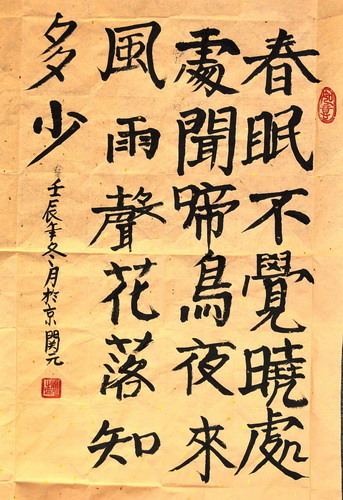 春眠不覺曉處
處聞啼鳥夜來
風雨聲花落知
多少
壬辰年冬月於京 関元